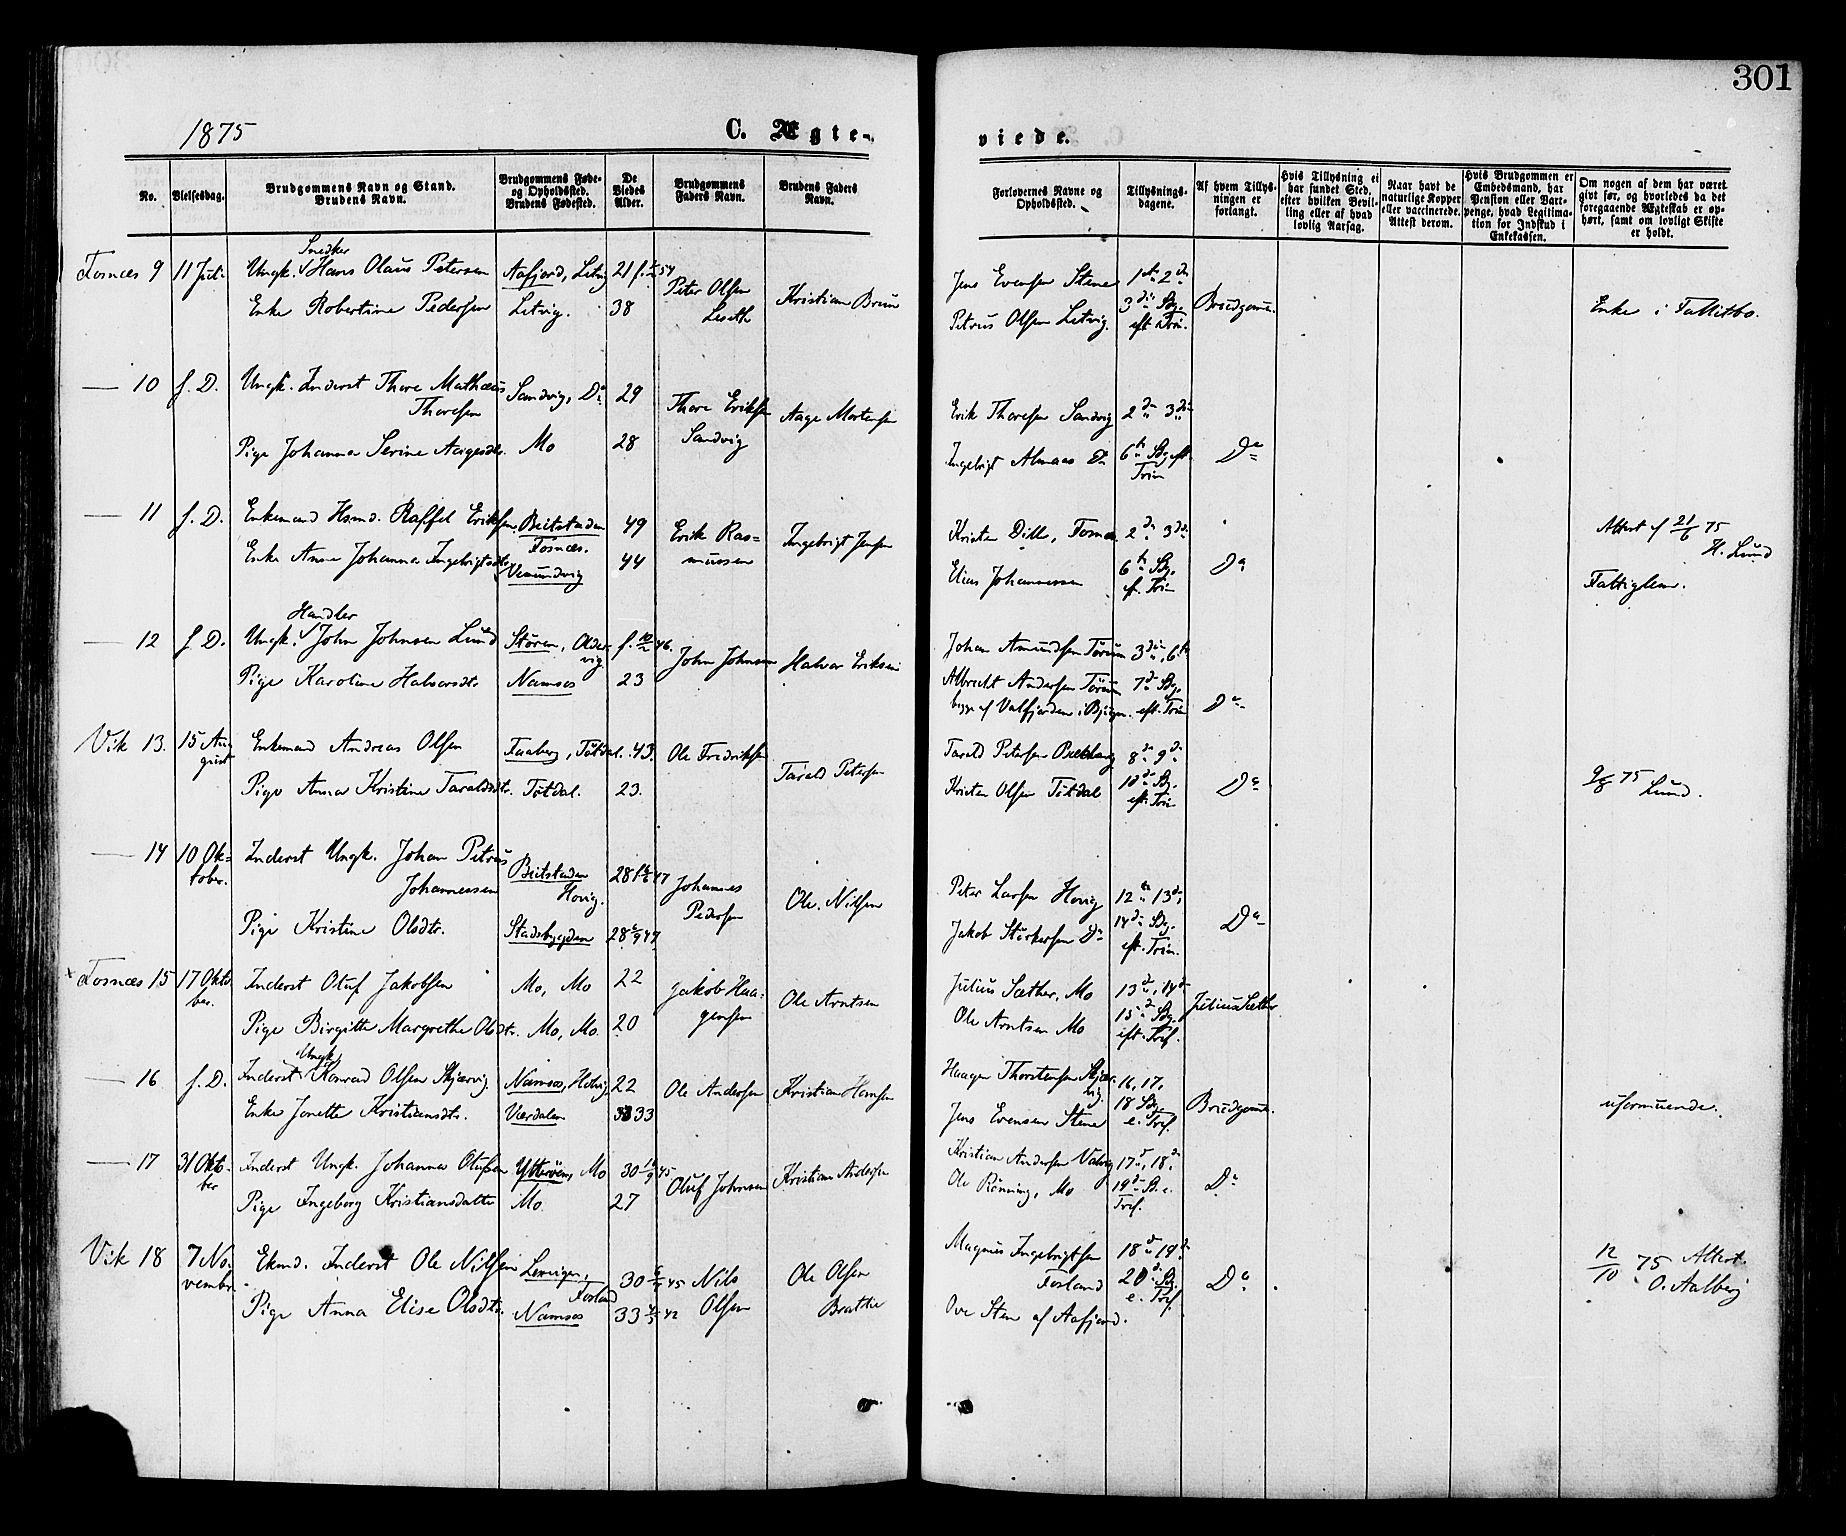 301
1875
C. Ægte-
viede.
No.
Vielsesdag.
Brudgommens Navn og Stand.
Brudens Navn.
Brudgommens Føde-
og Opholdssted.
Brudens Fødested.
De
Viedes
Alder.
Brudgommens
Faders Navn.
Brudens Faders
Navn.
Forlovernes Navne og
Opholdssted.
Tillysnings-
dagene.
Af hvem Tillys-
ningen er
forlangt.
Hvis Tillysning ei
har fundet Sted,
efter hvilken Bevil-
ling eller af hvad
lovlig Aarsag.
Naar havt de
naturlige Kopper
eller vaccinerede.
Attest derom.
Hvis Brudgommen er
Embedsmand, har
Pension eller Vart-
penge, hvad Legitima-
tion for Indskud i
Enkekassen.
Om nogen af dem har været
givt før, og hvorledes da det
foregaaende Ægteskab er op-
hørt, samt om lovligt Skifte
er holdt.
Fosnæs 9 11 Juli
Snedker
Ungk. Hans Olaus Petersen Aafjord, Letvig 21 f. 54
Enke Robertine Pedersen Letvig. 38
Peter Olsen
Leseth
Kristian Bruun
Jens Evensen Stene
Petrus Olsen Letvig.
1ste 2den
3die Sg.
eft. Trin.
Brudgom.
Enke i Fallitbo.
— 10 f. D.
Ungk. Inderst Thore Mathæus
Thoresen
Sandvig, Do 29
Pige Johanna Serine Aagesdtr. Mo 28
Thore Eriksen
Sandvig
Aage Mortensen
Erik Thoresen Sandvig
Ingebrigt Almaas Do
2den 3die
6te Sg. eft.
Trin
Do
— 11 f. D.
Enkemand Hsmd. Raffel Eriksen Beitstaden 49
Fosnæs.
Enke Anne Johanna Ingebrigtsdtr. Vemundvig 44
Erik Ras-
mussen
Ingebrigt Jensen
Kristen Dille, Fosnæs
Elias Johannessen
2den 3die
6te Sg.
ef. Trin
Do
Attest af 21/6 75
H. Lund
Fattiglem.
— 12 f. D.
Handler
Ungk. John Johnsen Lund Støren, Older-
vig f. 10/2 46.
Pige Karoline Halvorsdtr. Namsos 23
John Johnsen
Halvor Eriksen
Johan Amundsen Tørum
Albrecht Andersen Tørum
begge af Valsfjorden i Bjugn.
3die, 6te
7de Sg.
eft. Trin
Do
Vik 13. 15 Au-
gust
Enkemand Andreas Olsen Faaberg, Tøtdal. 43.
Pige Anna Kristine Taraldsdtr. Tøtdal. 23.
Ole Fredriksen
Tarald Petersen
Tarald Petersen
Kristen Olsen Tøtdal
8de 9de
10de Sg.
eft. Trin
Do
9/8 75
Lund.
— 14 10 Ok-
tober.
Inderst Ungk. Johan Petrus
Johannessen
Beitstaden
Hovig. 28 47
Pige Kristine Olsdtr. Stadsbygden 28 47
Johannes
Pedersen
Ole Nilsen
Peter Larsen Hovig
Jakob Størkersen Do
12te 13de
14de Sg.
eft. Trin.
Do
Fosnæs 15 17 Okto-
ber.
Inderst Oluf Jakobsen Mo, Mo 22
Pige Birgitte Margrethe Olsdtr. Mo, Mo. 20
Jakob Haa-
gensen
Ole Arntsen
Julius Sæther, Mo
Ole Arntsen Mo
13de, 14de
15de Sg.
eft. Tref.
Julius Sæther
— 16 f. D.
Ungk.
Inderst Konrad Olsen Skjærvig. Namsos, Hotvig 22
Enke Jonette Kristiansdtr. Værdalen 33
Ole Andersen
Kristian Hansen
Haagen Thorstensen Skjær-
vig.
Jens Evensen Stene
16, 17,
18 Sg.
e. Tref.
Brudgom.
uformuende.
— 17 31 Okto-
ber
Inderst Ungk. Johannes Olufsen Ytterøen, Mo 30 45
Pige Ingeborg Kristiansdatter Mo. 27
Oluf Johnsen
Kristian Andersen
Kristian Andersen Valvig
Ole Rønning, Mo
17de, 18de
19de S. e.
Tref.
Do
Vik 18 7 No-
vember.
Ekmd. Inderst Ole Nilsen Levanger,
Forland 30 45
Pige Anna Elise Olsdtr. Namsos 33 42
Nils
Olsen
Ole Olsen
Brathe
Magnus Ingebrigtsen
Forland
Ove Sten af Aafjord.
18de 19de
20de Sg.
e. Tref.
Do
12/10 75 Attest.
O. Aalberg